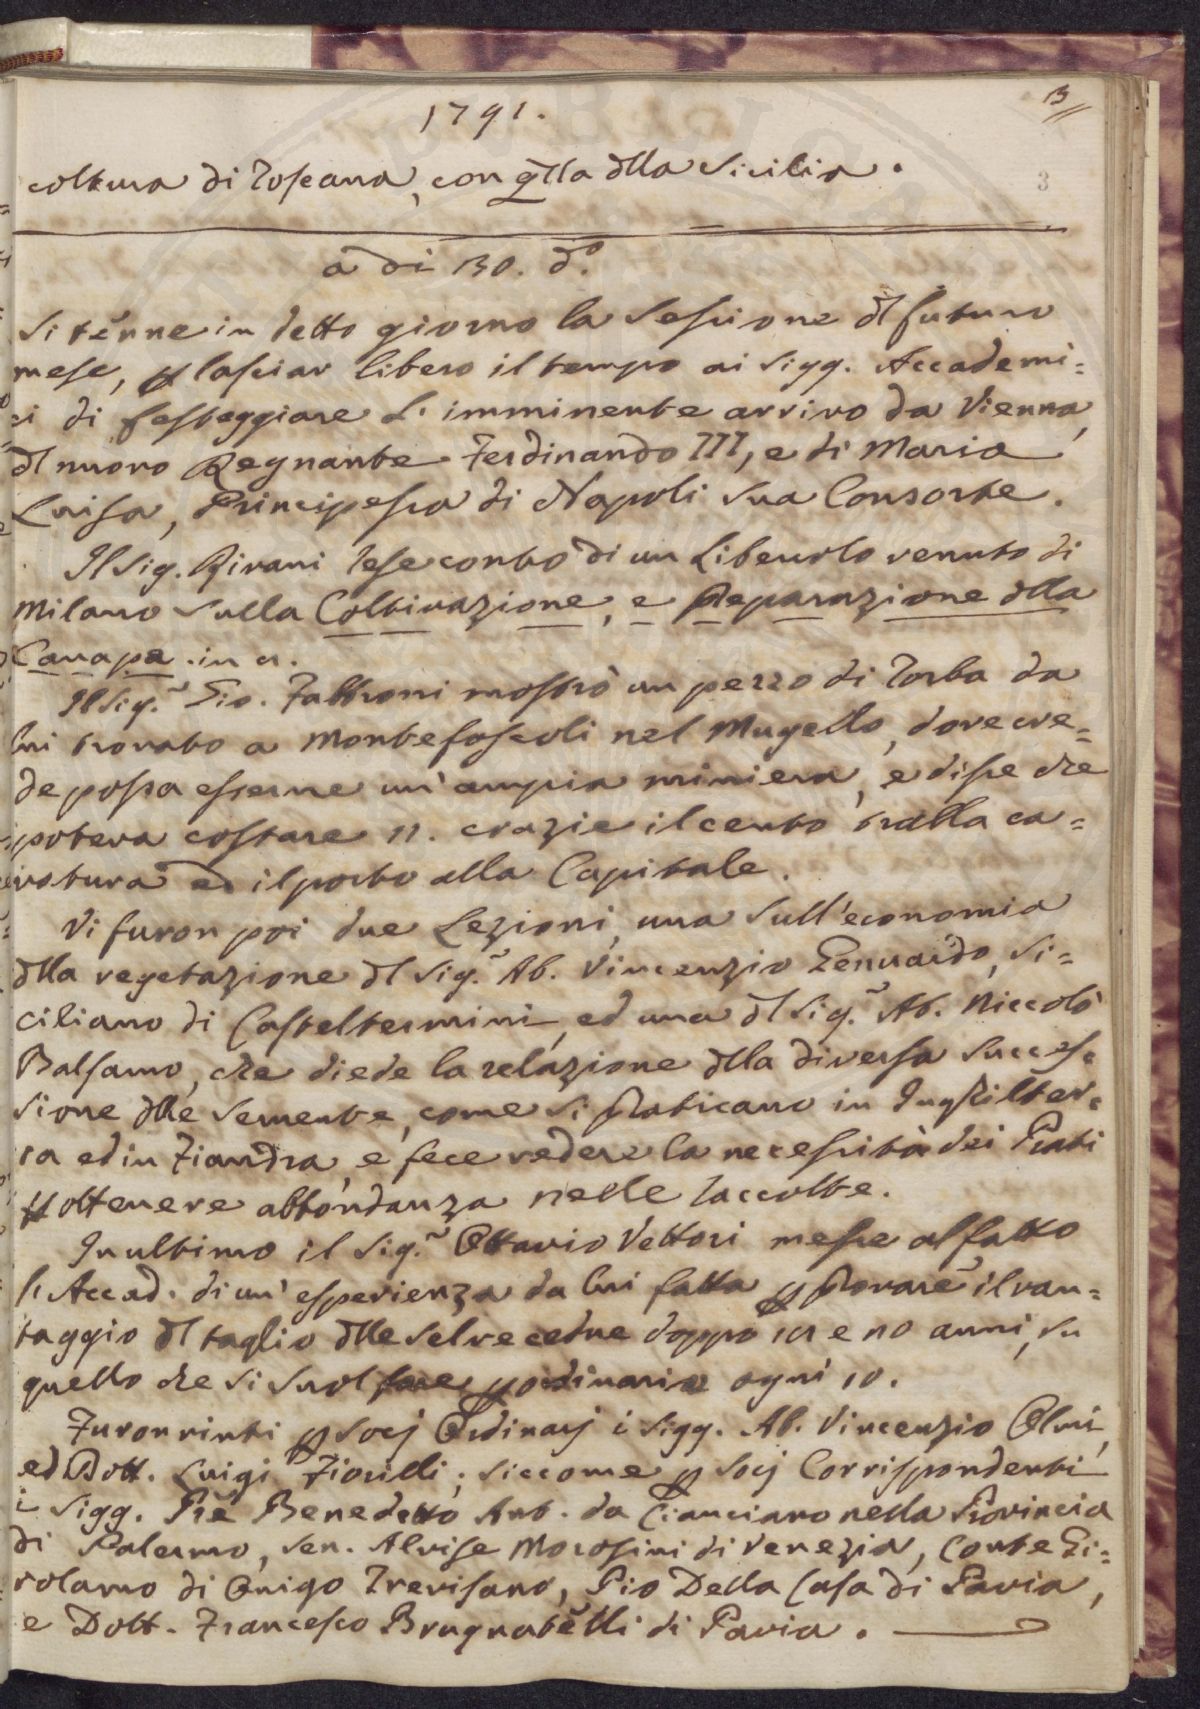 1791.
3
3
coltura di Toscana, con q̃lla dlla Sicilia.
a di 30. d.º
Si tenne in detto giorno la Sessione dl futuro
mese, p lasciar libero il tempo ai Sigg. Accademi=
ci di festeggiare l'imminente arrivo da Vienna,
dl nuovo Regnante Ferdinando III, e di Maria
Luisa, Principessa di Napoli sua Consorte.
Il Sig. Pivani rese conto di un Libercolo venuto di
Milano sulla Coltivazione, e Preparazione dlla
Canapa. in
Il Sig.r Gio. Fabbroni mostrò un pezzo di Torba da
lui trovato a Montefoscoli nel Mugello, dove cre=
de possa esserne un'ampia miniera, e disse che
poteva costare 11. crazie il cento tralla ca=
vatura ed il porto alla Capitale.
Vi furon poi due Lezioni, una sull'economia
dlla vegetazione dl Sig.r Ab. Vincenzio Genuardo, Si=
ciliano di Casteltermini, ed una dl Sig.r Ab. Niccolò
Balsamo, che diede la relazione dlla diversa succes=
sione dlle semente, come si praticano in Inghilter=
ra ed in Fiandra, e fece vedere la necessità dei Prati
p ottenere abbondanza nelle raccolte.
In ultimo il Sig.r Ottavio Vettori messe al fatto
l'Accad. di un'esperienza da lui fatta p provare il van=
taggio dl taglio dlle selve cedue doppo e 20 anni, su
quello che si suol fare p ordinario ogni 10.
Furon vinti p Socj Ordinarj i Sigg. Ab. Vincenzio
ed Dott. Luigi Fiorilli; siccome p Socj Corrispondenti
i Sigg. Pre Benedetto Ant. da Cianciano nella Provincia
di Palermo, Sen. Alvise Morosini di Venezia, Conte Gi=
rolamo di Onigo Trevisano, Pio Della Casa di Pavia,
e Dott. Francesco Brugnatelli di Pavia.